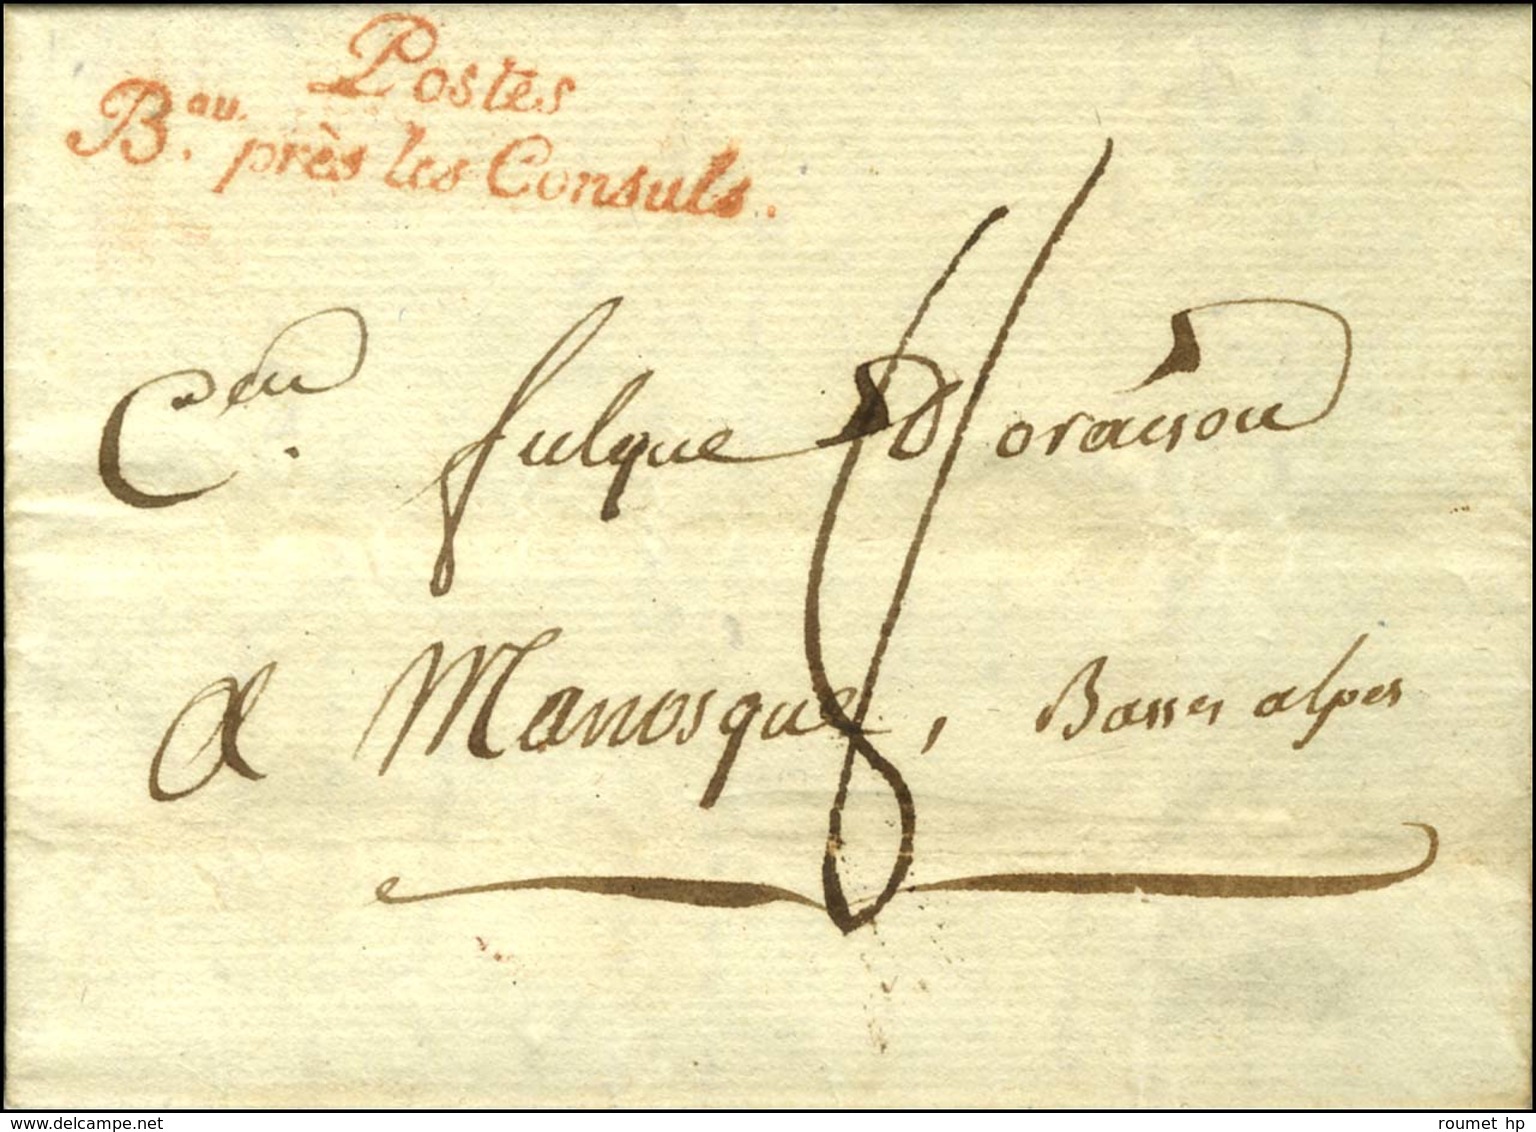 Postes
B.au près les Consuls.
C.en fulque D'oraison
a Manosque, Basses alpes
8
www.delcampe.net
roumet hp